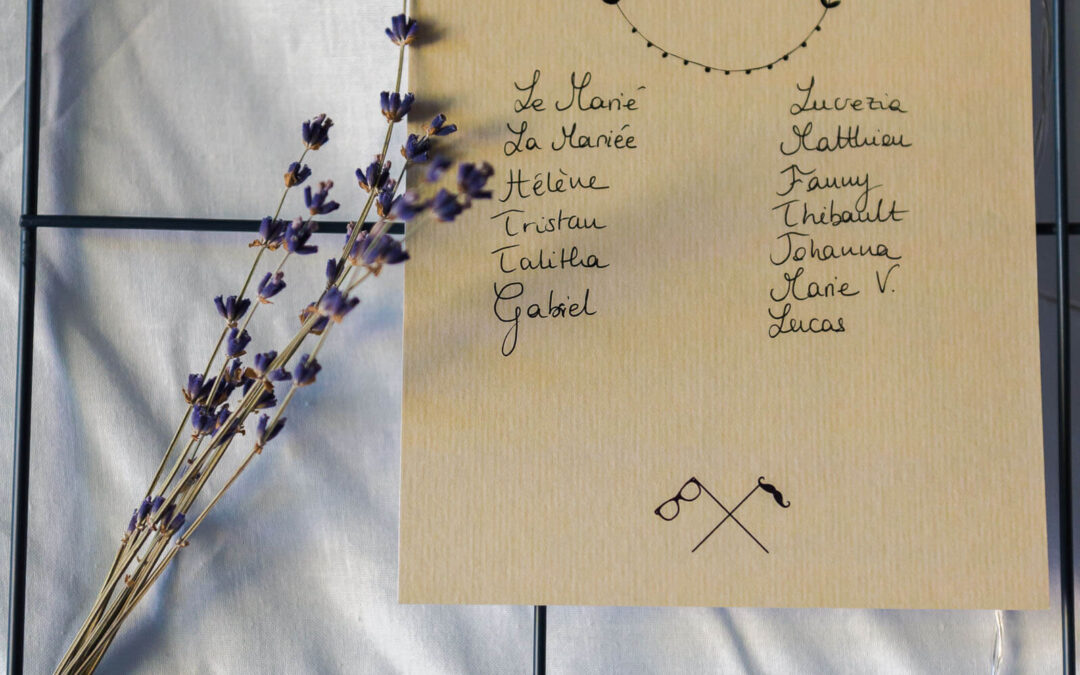 Le Marié
La Mariée
Hélène
Tristan
Talitha
Gabriel
Lucrezia
Matthieu
Fanny
Thibault
Johanna
Marie V.
Lucas